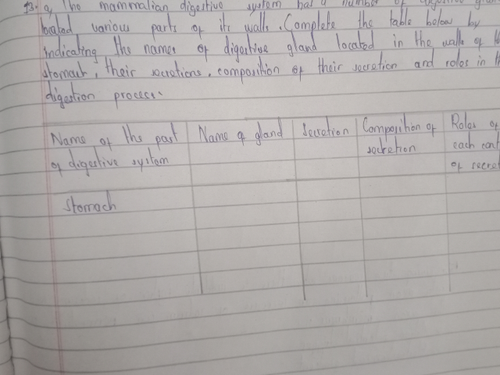 a, The mammalian digestive system has a number of digestive gland
located various parts of its wall. Complete the table below by
indicating the names of digestive gland located in the walls of th
stomach, their secretions, composition of their secretion and roles in th
digestion process.
Name of the part of digestive system
Name of gland
Secretion
Composition of secretion
Roles of each cont of secret
Stomach